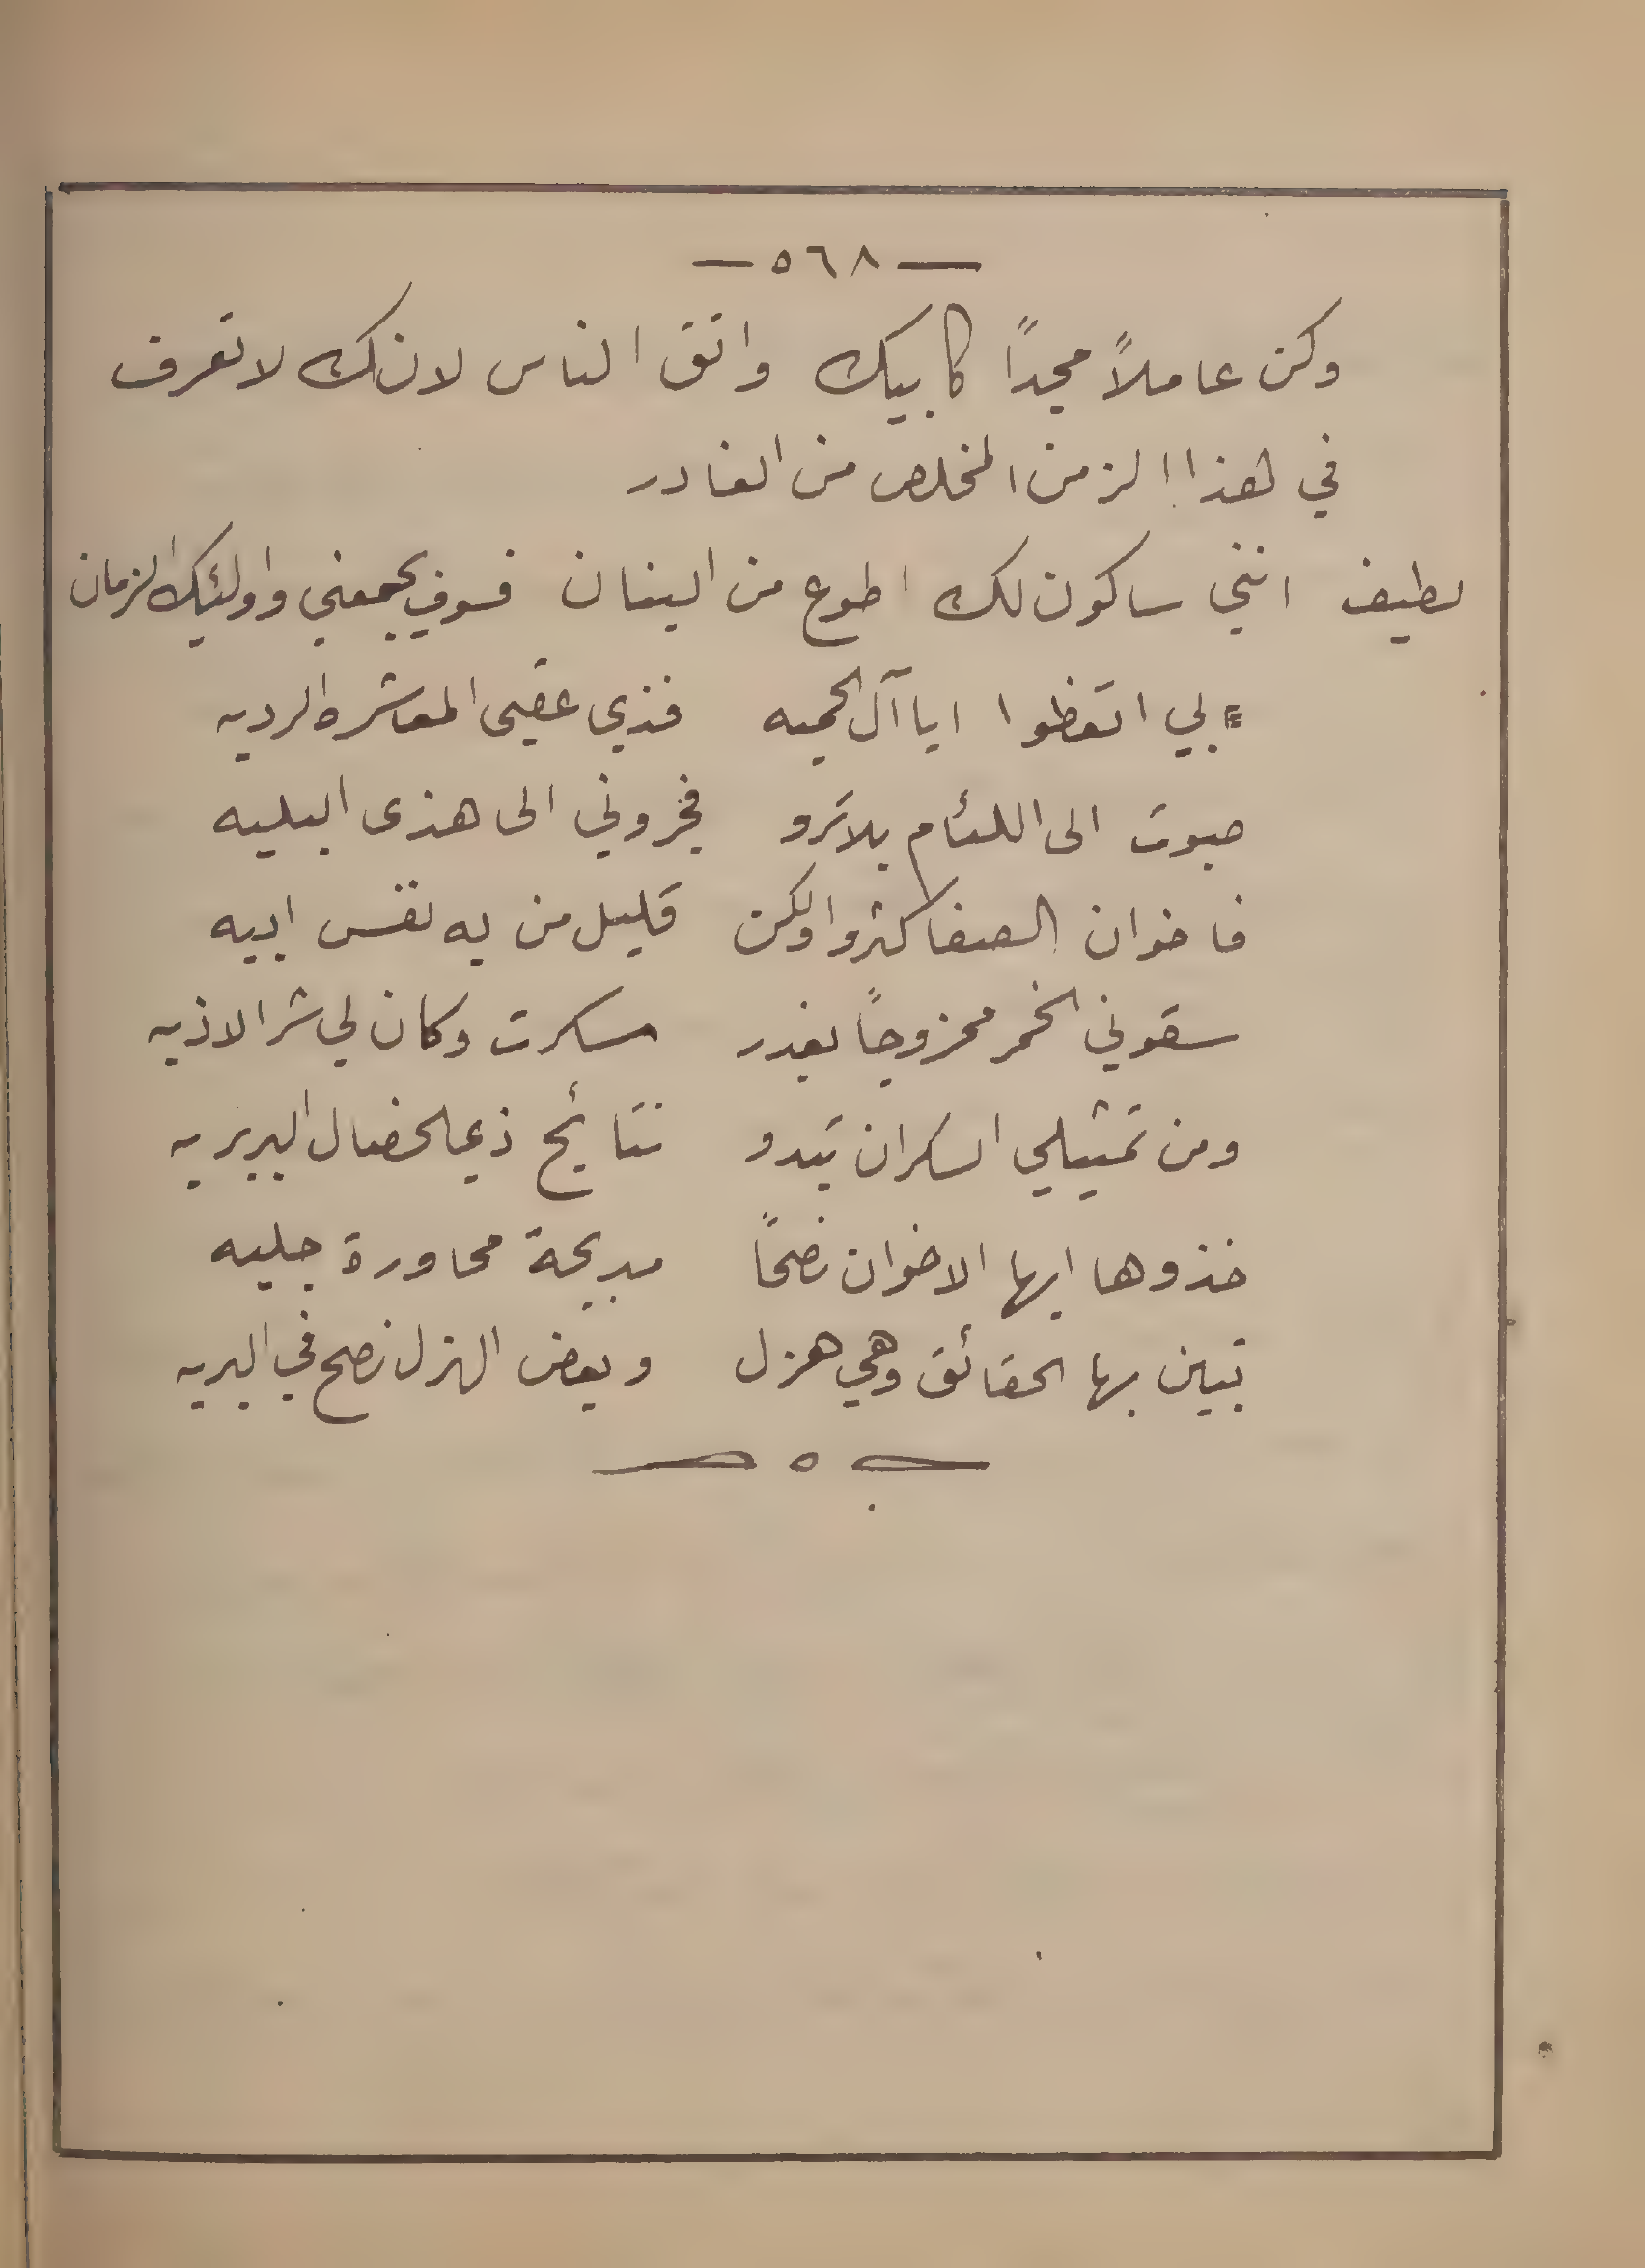 — ٥٦٨ —
وكن عاملاً مجداً كابيك واتق الناس لانك لا تعرف
في هذا الزمن المخلص من الغادر
لطيف انني ساكون لك اطوع من البنان فسوف يجمعني واولئيك الزمان
بي اتعظوا ايا آل الحميه فذي عقبى المعاشره الرديه
صبوت الى اللئام بلا تروٍ فجروني الى هذى البليه
فاخوان الصفا كثروا ولكن قليل من به نفس ابيه
سقوني الخمر ممزوجاً بغدر فسكرت وكان لي شر الاذيه
ومن تمثيلي السكران تبدو نتائج ذي الخصال البربريه
خذوها ايها الاخوان نصحاً مبريحة محاورة جليه
تبين بها الحقائق وهي هزل وبعض الهزل نصح في البريه